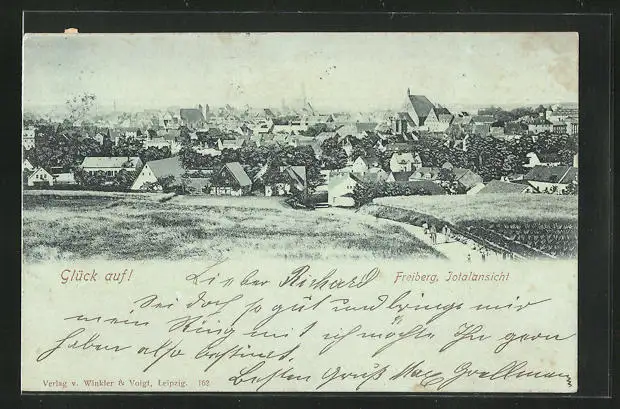 Glück auf!
Freiberg, Totalansicht
Lieber Richard
Sei doch so gut und bringe mir
mein Ring mit ich möchte Ihn gern
haben also bestimmt
Besten Gruß Max
Verlag v. Winkler & Voigt, Leipzig. 162